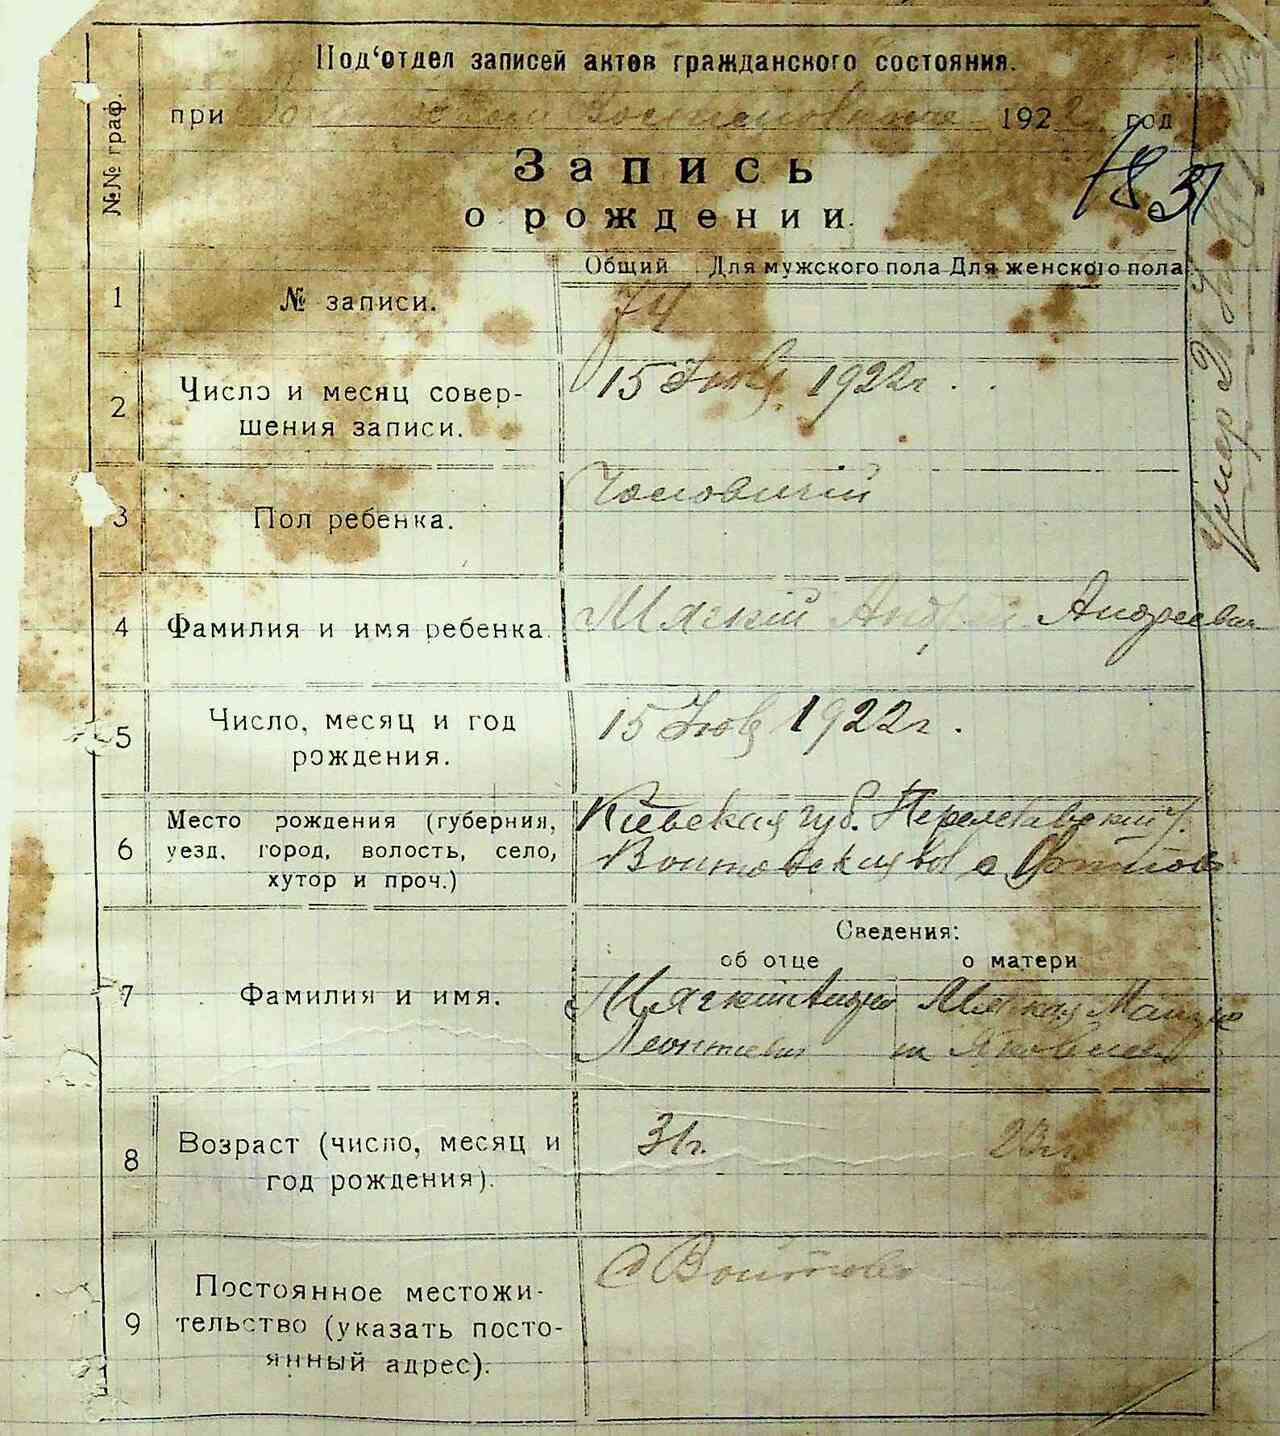 Под‘отдел записей актов гражданского состояния.
при 1922 год
Запись
о рождении.
48 31
№№ граф.
Общий Для мужского пола Для женского пола
1 № записи. 74
2 Число и месяц совер-
шения записи.
15 Июля 1922г.
3 Пол ребенка.
Чоловичій
4 Фамилия и имя ребенка.
Мягкій Андрей Андреевич
5 Число, месяц и год
рождения.
15 Июля 1922г.
6 Место рождения (губерния,
уезд, город, волость, село,
хутор и проч.)
Киевская губ. Переяславский у.
Войтовская вол с Войтово
Сведения:
об отце о матери
7 Фамилия и имя.
Мягкий Андрей
Леонтиевич
Мягкая
8 Возраст (число, месяц и
год рождения).
31г. 23г.
9 Постоянное местожи-
тельство (указать посто-
янный адрес).
с Войтово
Умер 21